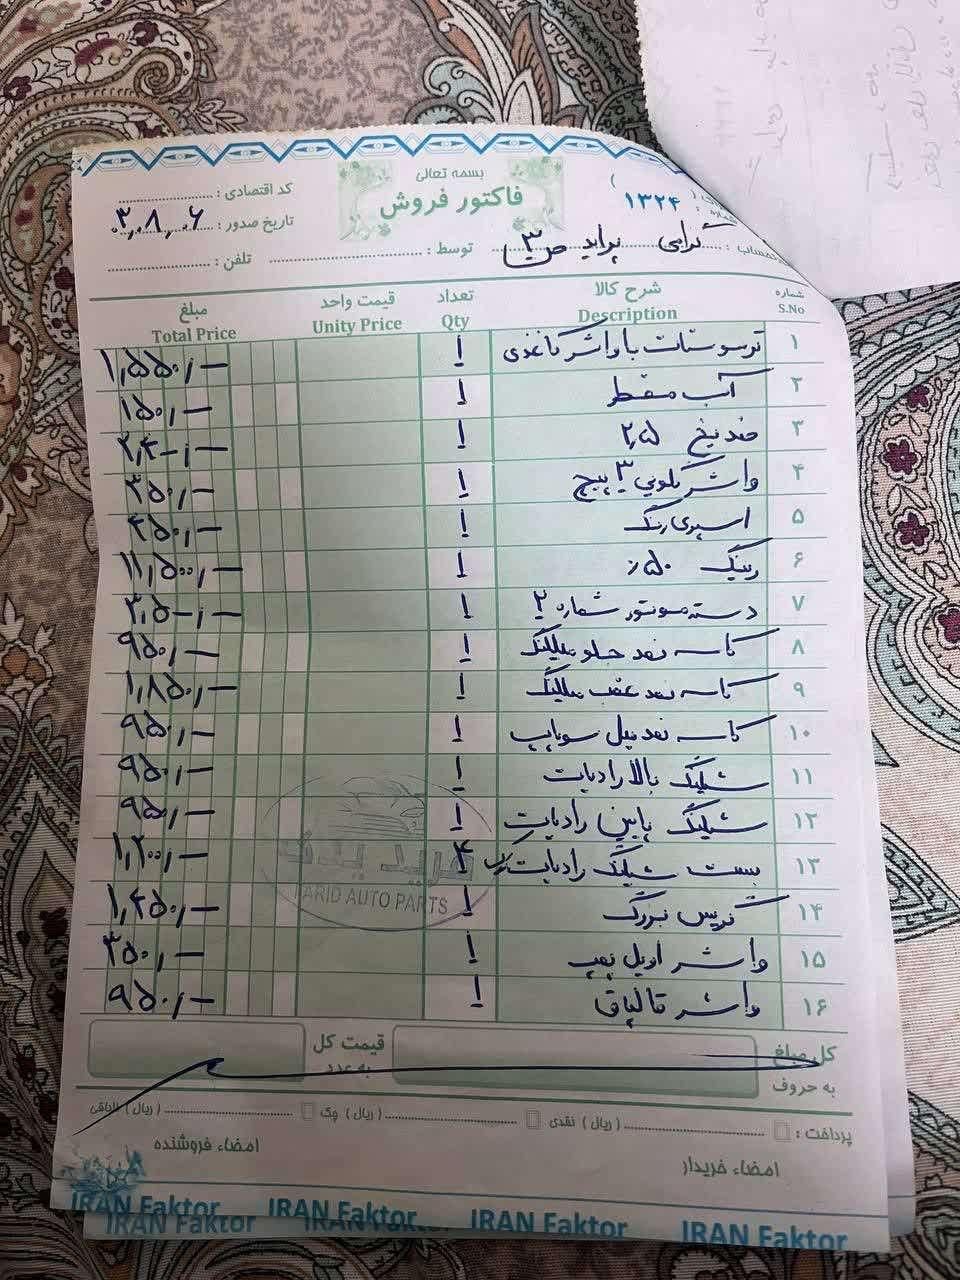 بسمه تعالی
فاکتور فروش
کد اقتصادی :
۱۳۲۴
تاریخ صدور : ۰۳,۰۸,۰۶
گرامی پراید ص ۳
توسط :
تلفن :
شماره شرح کالا تعداد قیمت واحد مبلغ
S.No Description Qty Unity Price Total Price
۱ ترموستات با واشر کاغذی ۱ ۱,۵۵۰,—
۲ آب مقطر ۱ ۱۵۰,—
۳ ضد یخ ۲,۵ ۱ ۲,۴۰,—
۴ واشر گلویی ۳ پیچ ۱ ۳۵۰,—
۵ اسپری رنگ ۱ ۴۵۰,—
۶ رینگ ۵۰٪ ۱ ۱۱,۵۰۰,—
۷ دسته موتور شماره ۲ ۱ ۳,۵۰۰,—
۸ کاسه نمد جلو میللنگ ۱ ۹۵۰,—
۹ کاسه نمد عقب میللنگ ۱ ۱,۸۵۰,—
۱۰ کاسه نمد میل سوپاپ ۱ ۹۵۰,—
۱۱ شیلنگ بالا رادیات ۱ ۹۵۰,—
۱۲ شیلنگ پایین رادیات ۱ ۹۵۰,—
۱۳ بست شیلنگ رادیات ۴ ۱,۲۰۰,—
۱۴ گریس بزرگ ۱ ۱,۴۵۰,—
۱۵ واشر اویل پمپ ۱ ۳۵۰,—
۱۶ واشر قالپاق ۱ ۹۵۰,—
فرید یدک
FARID AUTO PARTS
کل مبلغ به حروف
قیمت کل به عدد
پرداخت : (ریال) نقدی (ریال) چک (ریال) الباقی
امضاء خریدار
امضاء فروشنده
IRAN Faktor IRAN Faktor IRAN Faktor IRAN Faktor